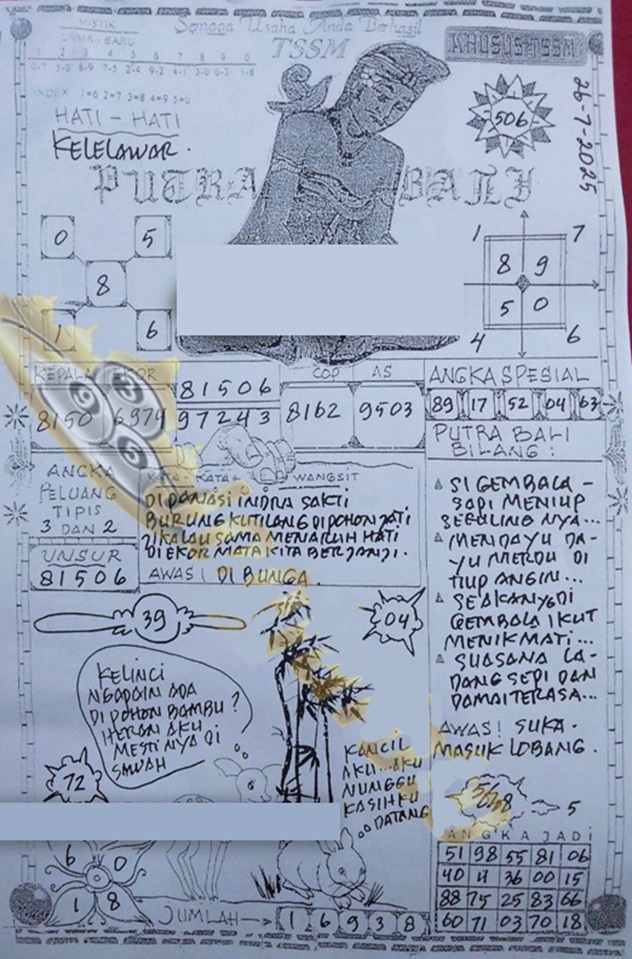 MISTIK
LAMA - BARU
1 2 3 4 5 6 7 8 9 0
INDEX 1=6 2=7 3=8 4=9 5=0
Semoga Usaha Anda Berhasil
TSSM
KHUSUS TSSM
506
26-7-2025
HATI - HATI
KELELAWAR.
PUTRA BALI
0 5
8
1 6
1 7
8 9
5 0
4 6
KEPALA EKOR
8150 6974
81506
97243
COP AS
8162 9503
ANGKA SPESIAL
89 17 52 04 63
ANGKA
PELUANG
TIPIS
3 DAN 2
UNSUR
81506
KATA - KATA WANGSIT
DI PANASI INDRA SAKTI
BURUNG KUTILANG DI POHON JATI
JIKALAU SAMA MENARUH HATI
DI EKOR MATA KITA BERJANJI.
AWAS! DI BUNGA.
PUTRA BALI
BILANG:
SI GEMBALA -
SAPI MENIUP
SERULING NYA...
MENDAYU DA-
YU MERDU DI
TIUP ANGIN...
SEAKAN
GEMBALA IKUT
MENIKMATI...
SUASANA LA-
DANG SEPI DAN
DAMAI TERASA...
AWAS! SUKA-
MASUK LOBANG.
39
04
KELINCI
NGAPAIN ADA
DI POHON BAMBU?
HERAN AKU.
MESTINYA DI
SAWAH
72
KANCIL
AKU...AKU
NUNGGU
KASIHKU
DATANG
5
6 0
1 8
JUMLAH
1 6 9 3 8
ANGKA JADI
51 98 55 81 06
40 11 36 00 15
88 75 25 83 66
60 71 03 70 18